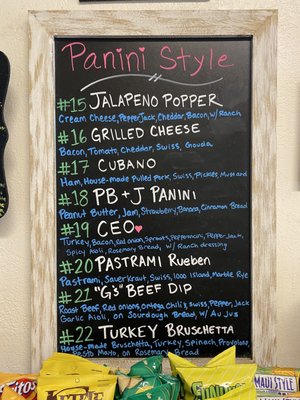 Panini Style
#15 JALAPENO POPPER
Cream Cheese, PepperJack, Cheddar, Bacon, w/ Ranch
#16 GRILLED CHEESE
Bacon, Tomato, Cheddar, Swiss, Gouda
#17 CUBANO
Ham, House-made Pulled Pork, Swiss, Pickles, Mustard
#18 PB + J PANINI
Peanut Butter, Jam, Strawberry, Banana, Cinnamon Bread
#19 CEO
Turkey, Bacon, Red onion, Sprouts, Pepperoncini, Pepper Jack,
Spicy Aioli, Rosemary Bread, w/ Ranch dressing
#20 PASTRAMI Rueben
Pastrami, Sauerkraut, Swiss, 1000 Island, Marble Rye
#21 "G's" BEEF DIP
Roast Beef, Red onions, Ortega Chili's, Swiss, Pepper Jack
Garlic Aioli, on Sourdough Bread, w/ Au Jus
#22 TURKEY Bruschetta
House-made Bruschetta, Turkey, Spinach, Provolone,
Pesto Mayo, on Rosemary Bread
MAUI STYLE